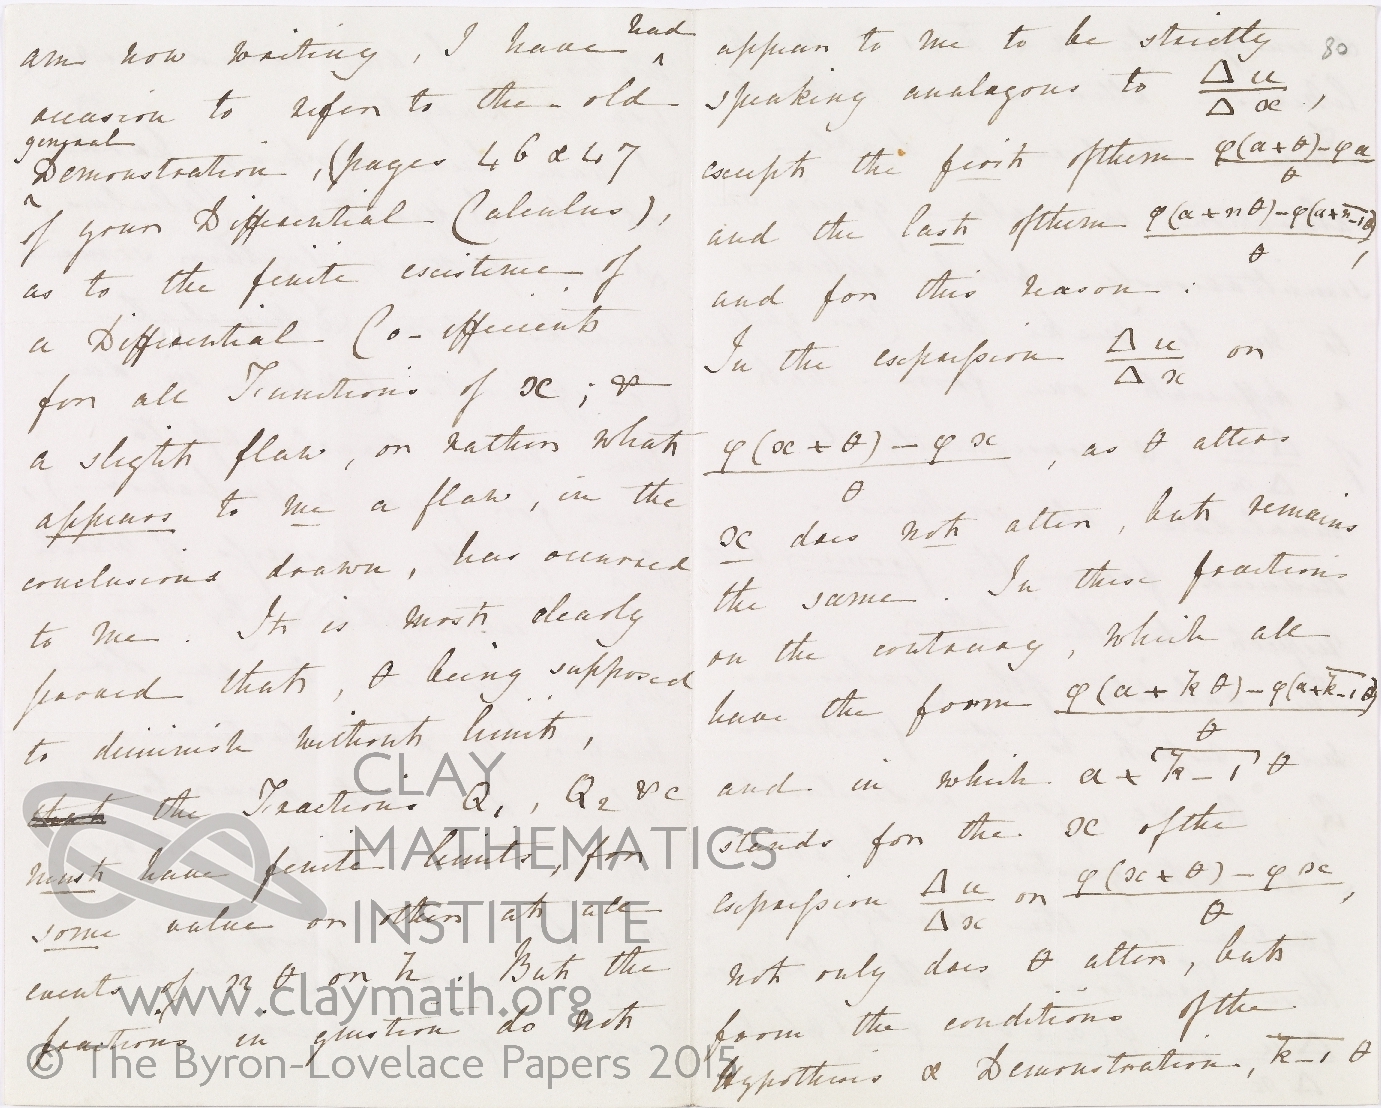 am now writing, I have had
occasion to refer to the old
general
Demonstration, (pages 46 & 47
of your Differential Calculus),
as to the finite existence of
a Differential Co-efficient
for all Functions of x; &
a slight flaw, or rather what
appears to me a flaw, in the
conclusions drawn, has occurred
to me. It is most clearly
proved that, θ being supposed
to diminish without limit,
that the Fractions Q₁, Q₂ &c
must have finite limits, for
some value or other at all
events of nθ or h. But the
fractions in question do not
80
appear to me to be strictly
speaking analogous to Δu/Δx,
except the first of them φ(a+θ)-φa/θ
and the last of them φ(a+nθ)-φ(a+n-1θ)/θ,
and for this reason:
In the expression Δu/Δx or
φ(x+θ)-φx/θ, as θ alters
x does not alter, but remains
the same. In these fractions
on the contrary, which all
have the form φ(a+kθ)-φ(a+k-1θ)/θ
and in which a+(k-1)θ
stands for the x of the
expression Δu/Δx or φ(x+θ)-φx/θ,
not only does θ alter, but
from the conditions of the
Hypothesis & Demonstration, k-1 θ
CLAY
MATHEMATICS
INSTITUTE
www.claymath.org
© The Byron-Lovelace Papers 2015